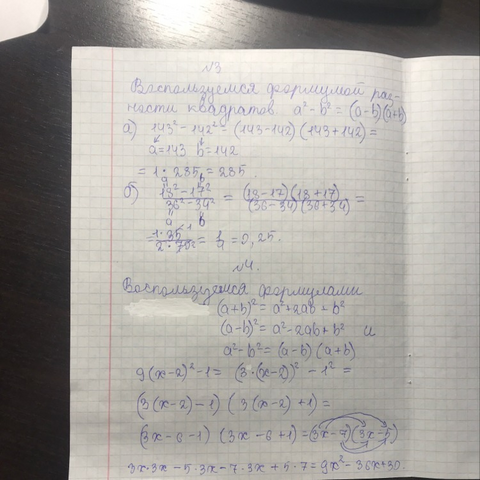 №3
Воспользуемся формулой раз-
ности квадратов. a² - b² = (a-b)(a+b)
а) 143² - 142² = (143-142)(143+142) =
a=143 b=142
= 1 · 285 = 285.
a b
б) 18² - 17² / 36² - 34² = (18-17)(18+17) / (36-34)(36+34) =
a b
= 1·35 / 2·70 = 1/4 = 0,25.
№4.
Воспользуемся формулами
(a+b)² = a² + 2ab + b²
(a-b)² = a² - 2ab + b² и
a² - b² = (a-b)(a+b)
9(x-2)² - 1 = (3·(x-2))² - 1² =
(3(x-2)-1) (3(x-2)+1) =
(3x-6-1) (3x-6+1) = (3x-7)(3x-5)
3x·3x - 5·3x - 7·3x + 5·7 = 9x² - 36x +